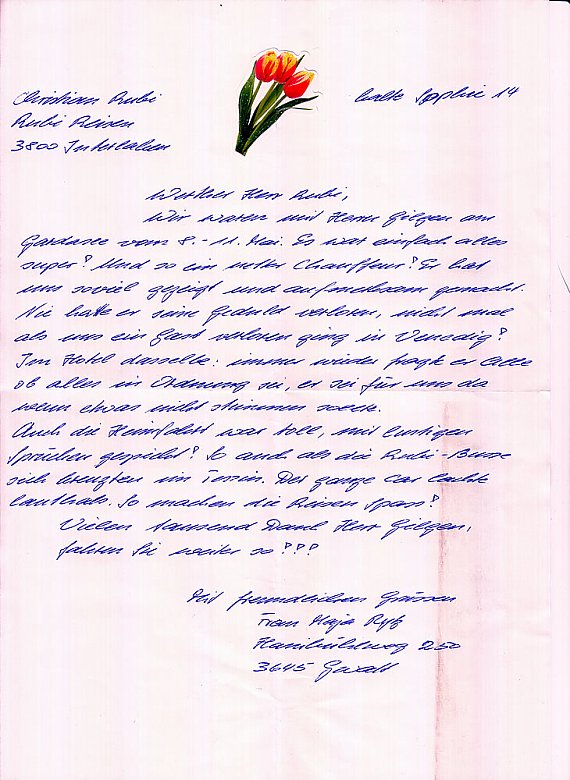 Christian Rubi
Rubi Reisen
3800 Interlaken
kalte Sophie 14
Werther Herr Rubi,
Wir waren mit Herrn Gilgen am
Gardasee vom 8. - 11. Mai. Es war einfach alles
super! Und so ein netter Chauffeur! Er hat
uns soviel gezeigt und aufmerksam gemacht.
Nie hatte er seine Geduld verloren, nicht mal
als uns ein Gast verloren ging in Venedig!
Im Hotel dasselbe: immer wieder fragte er Alle
ob alles in Ordnung sei, er sei für uns da
wenn etwas nicht stimmen sollte.
Auch die Heimfahrt war toll, mit lustigen
Sprüchen gespickt! So auch als die Rubi-Busse
sich kreuzten im Tessin. Der ganze Car lachte
lauthals. So machen die Reisen Spass!
Vielen tausend Dank Herr Gilgen,
fahren Sie weiter so!!!
Mit freundlichen Grüssen
Frau Maja Ryf
250
3645 Gwatt